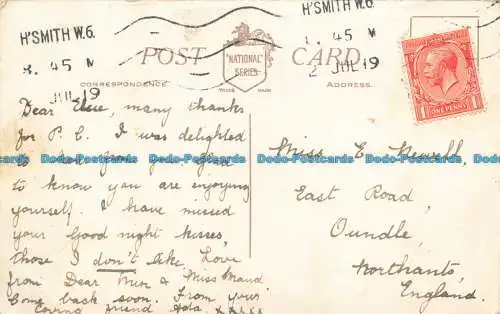 H'SMITH W.6.
3. 45 M
JUL 19
H'SMITH W.6.
45 M
2 JUL 19
POST CARD
"NATIONAL"
SERIES
TRADE MARK
CORRESPONDENCE
ADDRESS.
POSTAGE REVENUE
ONE PENNY
Dear Elsie, many thanks
for P. C. I was delighted
to hear from you. glad
to know you are enjoying
yourself. I have missed
your Good night kisses,
those I don't like. Love
from Dear &
Come back soon. From your
Loving friend Ada. xxxxx
Miss E Newell,
East Road,
Oundle,
Northants,
England.
Dodo-Postcards Dodo-Postcards Dodo-Postcards Dodo-Postcards Dodo-Postcards Dodo-Postcards